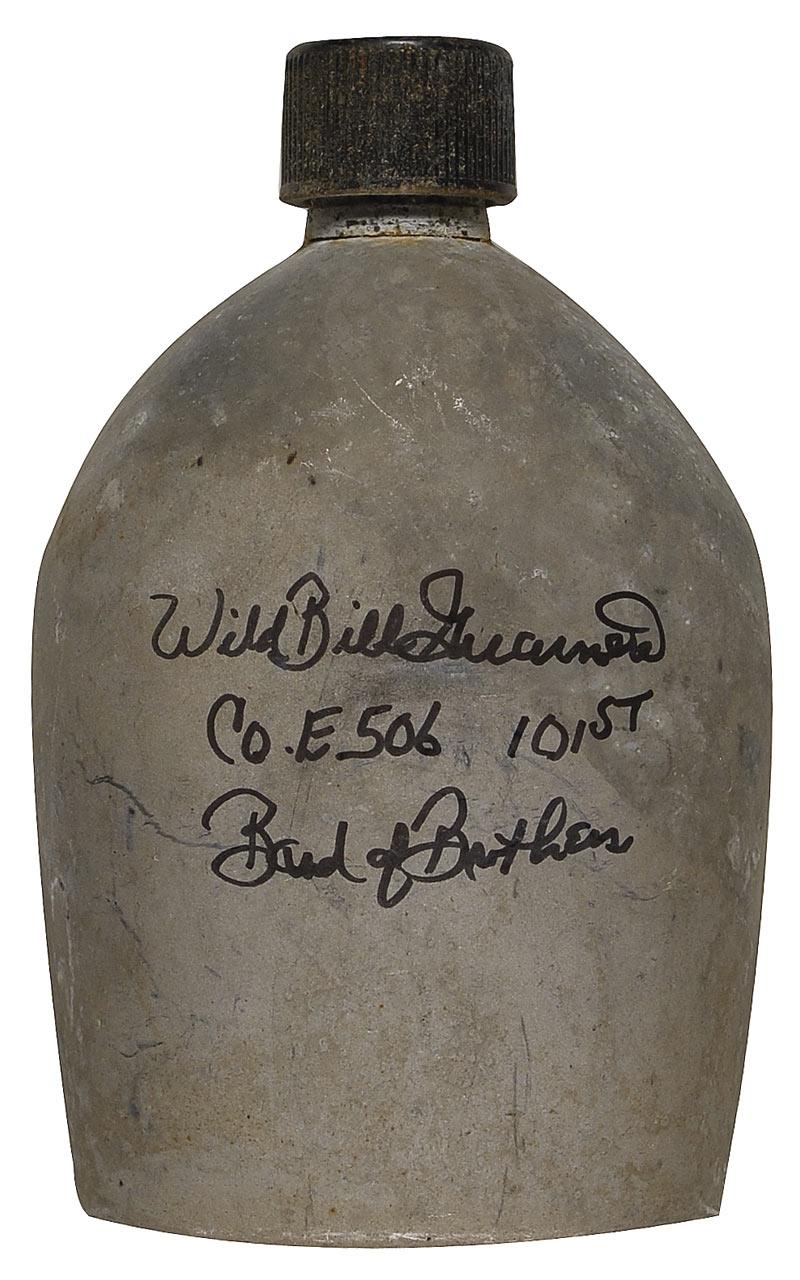 Wild Bill Guarnere
Co. E 506 101ST
Band of Brothers